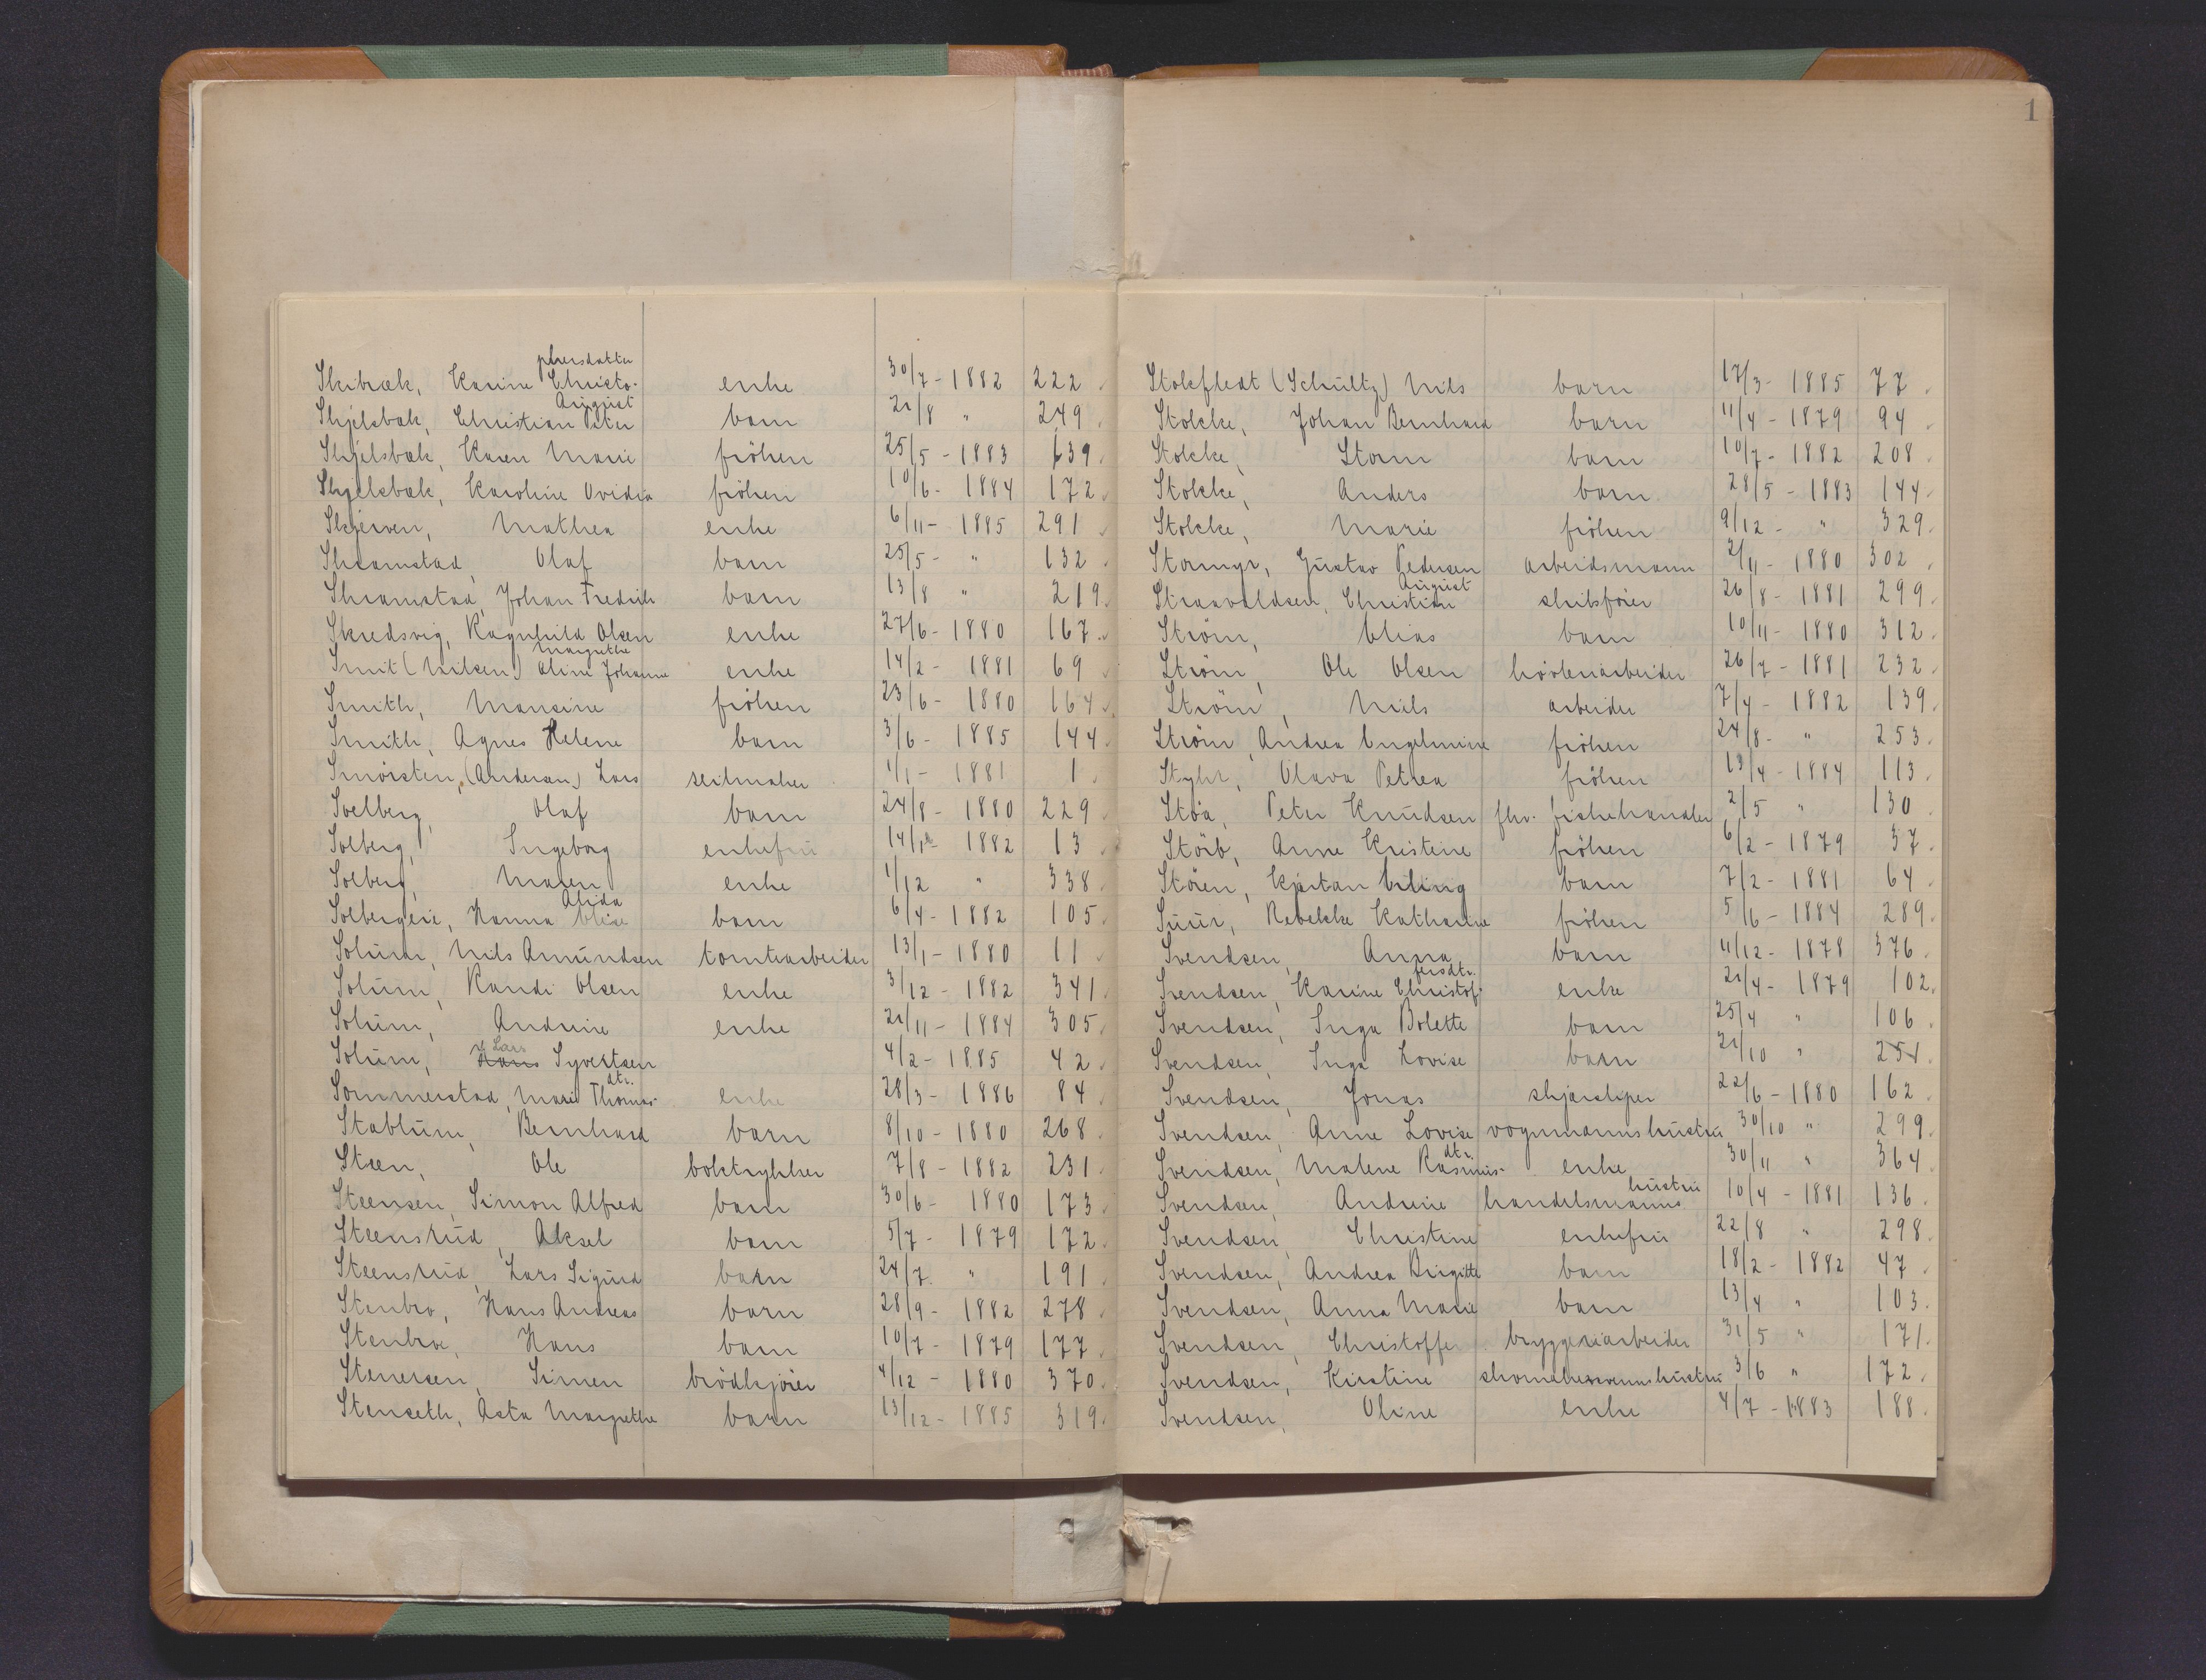 1
Skibræk, Karine Christophersdatter enke 30/7 - 1882 222.
Skjelsbæk, Christian Peter August barn 21/8 " 249.
Skjelsbæk, Karen Marie fröken 25/5 - 1883 139.
Skjelsbæk, Karoline Ovidia fröken 10/6 - 1884 172.
Skjerven, Mathea enke 6/11 - 1885 291.
Skramstad, Olaf barn 25/5 - " 132.
Skramstad, Johan Fredrik barn 13/8 " 219.
Skredsvig, Ragnhild Olsen enke 27/6 - 1880 167.
Smit (Nilsen) Oline Johanne Margrethe enke 14/2 - 1881 69
Smith, Mansine fröken 23/6 - 1880 164.
Smith, Agnes Helene barn 3/6 - 1885 144.
Smörsten, (Andersen) Lars seilmaker 1/1 - 1881 1.
Solberg, Olaf barn 24/8 - 1880 229
Solberg, Ingeborg enkefrü 14/1 - 1882 13
Solberg, Maren enke 1/12 " 338.
Solbergeie, Hanna Elise Alida barn 6/4 - 1882 105.
Solum, Nils Amundsen tomtearbeider 13/1 - 1880 11
Solum, Randi Olsen enke 3/12 - 1882 341.
Solum, Andrine enke 21/11 - 1884 305.
Solum, Hans Lars Syvertsen 4/2 - 1885 42.
Sommerstad, Mari Thomasdtr. enke 28/3 - 1886 84.
Stablum, Bernhard barn 8/10 - 1880 268.
Steen, Ole boktrykker 7/8 - 1882 231.
Steensen, Simon Alfred barn 30/6 - 1880 173.
Steensrud, Aksel barn 5/7 - 1879 172.
Steensrud, Lars Sigurd barn 24/7. " 191.
Stenbro, Hans Andreas barn 28/9 - 1882 278.
Stenbroe, Hans barn 10/7 - 1879 177.
Stenersen, Simen brödkjörer 4/12 - 1880 370.
Stenseth, Asta Margrethe barn 13/12 - 1885 319.
Stokfledt (Schultz) Nils barn 17/3 - 1885 77.
Stokke, Johan Bernhard barn 11/4 - 1879 94.
Stokke, Storm barn 10/7 - 1882 208.
Stokke, Anders barn 28/5 - 1883 144.
Stokke, Marie fröken 9/12 - " 329.
Stormyr, Gustav Pedersen arbeidsmann 2/11 - 1880 302.
Straavaldsen, Christian August 26/8 - 1881 299.
Ström, Elias barn 10/11 - 1880 312.
Ström, Ole Olsen 26/7 - 1881 232.
Ström, Nils arbeider 7/4 - 1882 139.
Ström, Andrea Engelmine fröken 24/8 - " 253.
Styhr, Olava Petrea fröken 19/4 - 1884 113.
Stöa, Peter Knudsen fhv. fiskehandler 2/5 " 130
Störb, Anne Kristine fröken 6/2 - 1879 37.
Stören, Kjartan Erling barn 7/2 - 1881 64.
Suur, Rebekke Katharine fröken 5/6 - 1884 289.
Svendsen, Anna barn 11/12 - 1878 376.
Svendsen, Karine Christofersdtr. enke 21/4 - 1879 102.
Svendsen, Inga Bolette barn 25/4 " 106.
Svendsen, Inga Lovise barn 21/10 " 251.
Svendsen, Jonas skjærsliper 22/6 - 1880 162.
Svendsen, Anne Lovise vognmannshustru 30/10 " 299.
Svendsen, Malene Rasmusdtr. enke 30/11 " 364
Svendsen, Andrine handelsmannshustru 10/4 - 1881 136.
Svendsen, Christine enkefru 22/8 " 298.
Svendsen, Andrea Birgitte barn 18/2 - 1882 47.
Svendsen, Anna Marie barn 13/4 " 103.
Svendsen, Christoffer bryggeriarbeider 31/5 " 171.
Svendsen, Kirstine skomakersvennshustru 3/6 " 172.
Svendsen, Oline enke 4/7 - 1883 188.